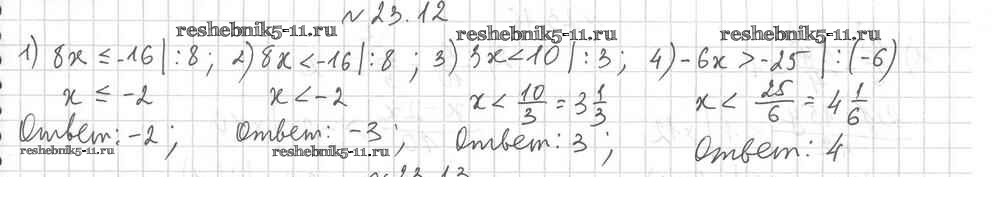 № 23.12
reshebnik5-11.ru reshebnik5-11.ru reshebnik5-11.ru
1) 8x ≤ -16 | :8; 2) 8x < -16 | :8; 3) 3x < 10 | :3; 4) -6x > -25 | :(-6)
x ≤ -2 x < -2 x < 10/3 = 3 1/3 x < 25/6 = 4 1/6
Ответ: -2; Ответ: -3; Ответ: 3; Ответ: 4
reshebnik5-11.ru reshebnik5-11.ru
№ 23.13